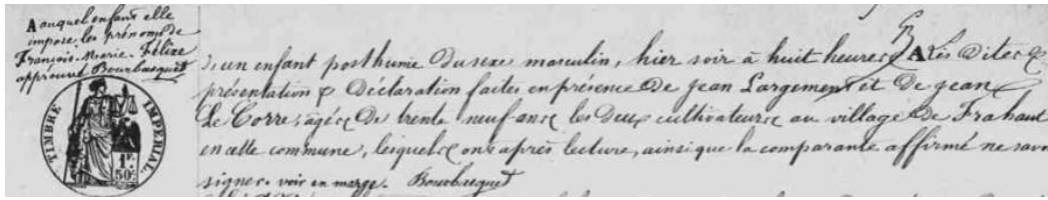 A auquel enfant elle
impose les prénoms de
François-Marie-Félix
approuvé Bourbasquet
TIMBRE IMPERIAL.
1F.
50c.
d'un enfant posthume du sexe masculin, hier soir à huit heures A Les dites
présentation & Déclaration faites en présence de jean Largement et de jean
Le Corre, agés de trente neuf ans les deux cultivateurs au village de Frahaut
en cette commune, lesquels ont après lecture, ainsi que la comparante affirmé ne savoir
signer. voir en marge. Bourbasquet